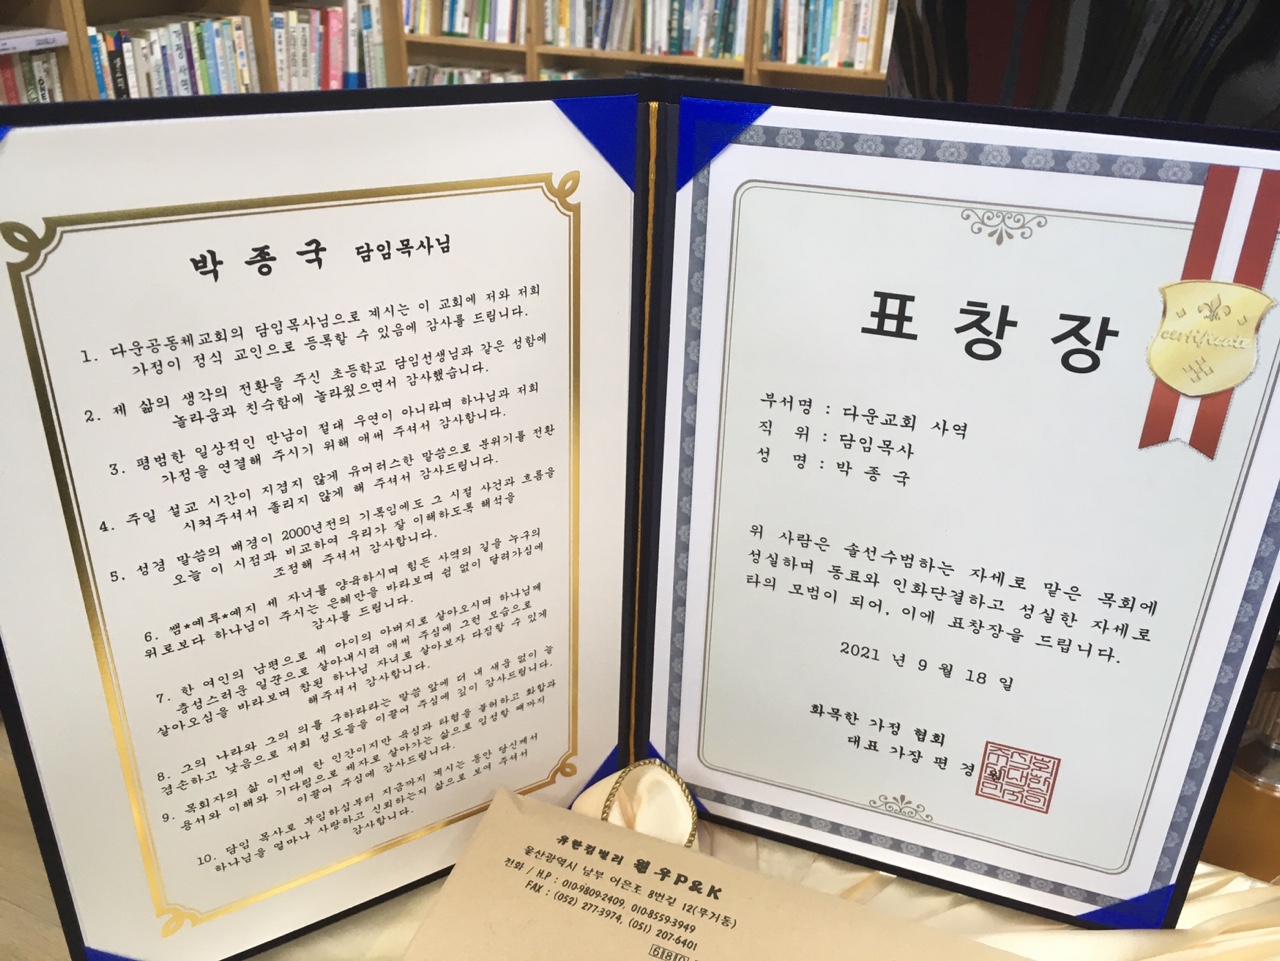 박 종 국 담임목사님
1. 다운공동체교회의 담임목사님으로 계시는 이 교회에 저와 저희
가정이 정식 교인으로 등록할 수 있음에 감사를 드립니다.
2. 제 삶의 생각의 전환을 주신 초등학교 담임선생님과 같은 성함에
놀라움과 친숙함에 놀라웠으면서 감사했습니다.
3. 평범한 일상적인 만남이 절대 우연이 아니라며 하나님과 저희
가정을 연결해 주시기 위해 애써 주셔서 감사합니다.
4. 주일 설교 시간이 지겹지 않게 유머러스한 말씀으로 분위기를 전환
시켜주셔서 졸리지 않게 해 주셔서 감사드립니다.
5. 성경 말씀의 배경이 2000년전의 기록임에도 그 시절 사건과 흐름을
오늘 이 시점과 비교하여 우리가 잘 이해하도록 해석을
조정해 주셔서 감사합니다.
6. 쌤*예루*예지 세 자녀를 양육하시며 힘든 사역의 길을 누구의
위로보다 하나님이 주시는 은혜만을 바라보며 쉼 없이 달려가심에
감사를 드립니다.
7. 한 여인의 남편으로 세 아이의 아버지로 살아오시며 하나님께
충성스러운 일꾼으로 살아내시려 애써 주심에 그런 모습으로
살아오심을 바라보며 참된 하나님 자녀로 살아보자 다짐할 수 있게
해주셔서 감사합니다.
8. 그의 나라와 그의 의를 구하라라는 말씀 앞에 더 내 세움 없이 늘
겸손하고 낮음으로 저희 성도들을 이끌어 주심에 깊이 감사드립니다.
9. 목회자의 삶 이전에 한 인간이지만 욕심과 타협을 불허하고 화합과
용서와 이해와 기다림으로 제자로 살아가는 삶으로 입성할 때까지
이끌어 주심에 감사드립니다.
10. 담임 목사로 부임하심부터 지금까지 계시는 동안 당신께서
하나님을 얼마나 사랑하고 신뢰하는지 삶으로 보여 주셔서
감사합니다.
표 창 장
certificate
부서명 : 다운교회 사역
직 위 : 담임목사
성 명 : 박 종 국
위 사람은 솔선수범하는 자세로 맡은 목회에
성실하며 동료와 인화단결하고 성실한 자세로
타의 모범이 되어, 이에 표창장을 드립니다.
2021 년 9 월 18 일
화목한 가정 협회
대표 가장 편 경
유한컴벨리 원우P&K
울산광역시 남부 어은로 8번길 12(무거동)
전화 / H.P : 010-9809-2409, 010-8559-3949
FAX : (052) 277-3974, (051) 207-6401